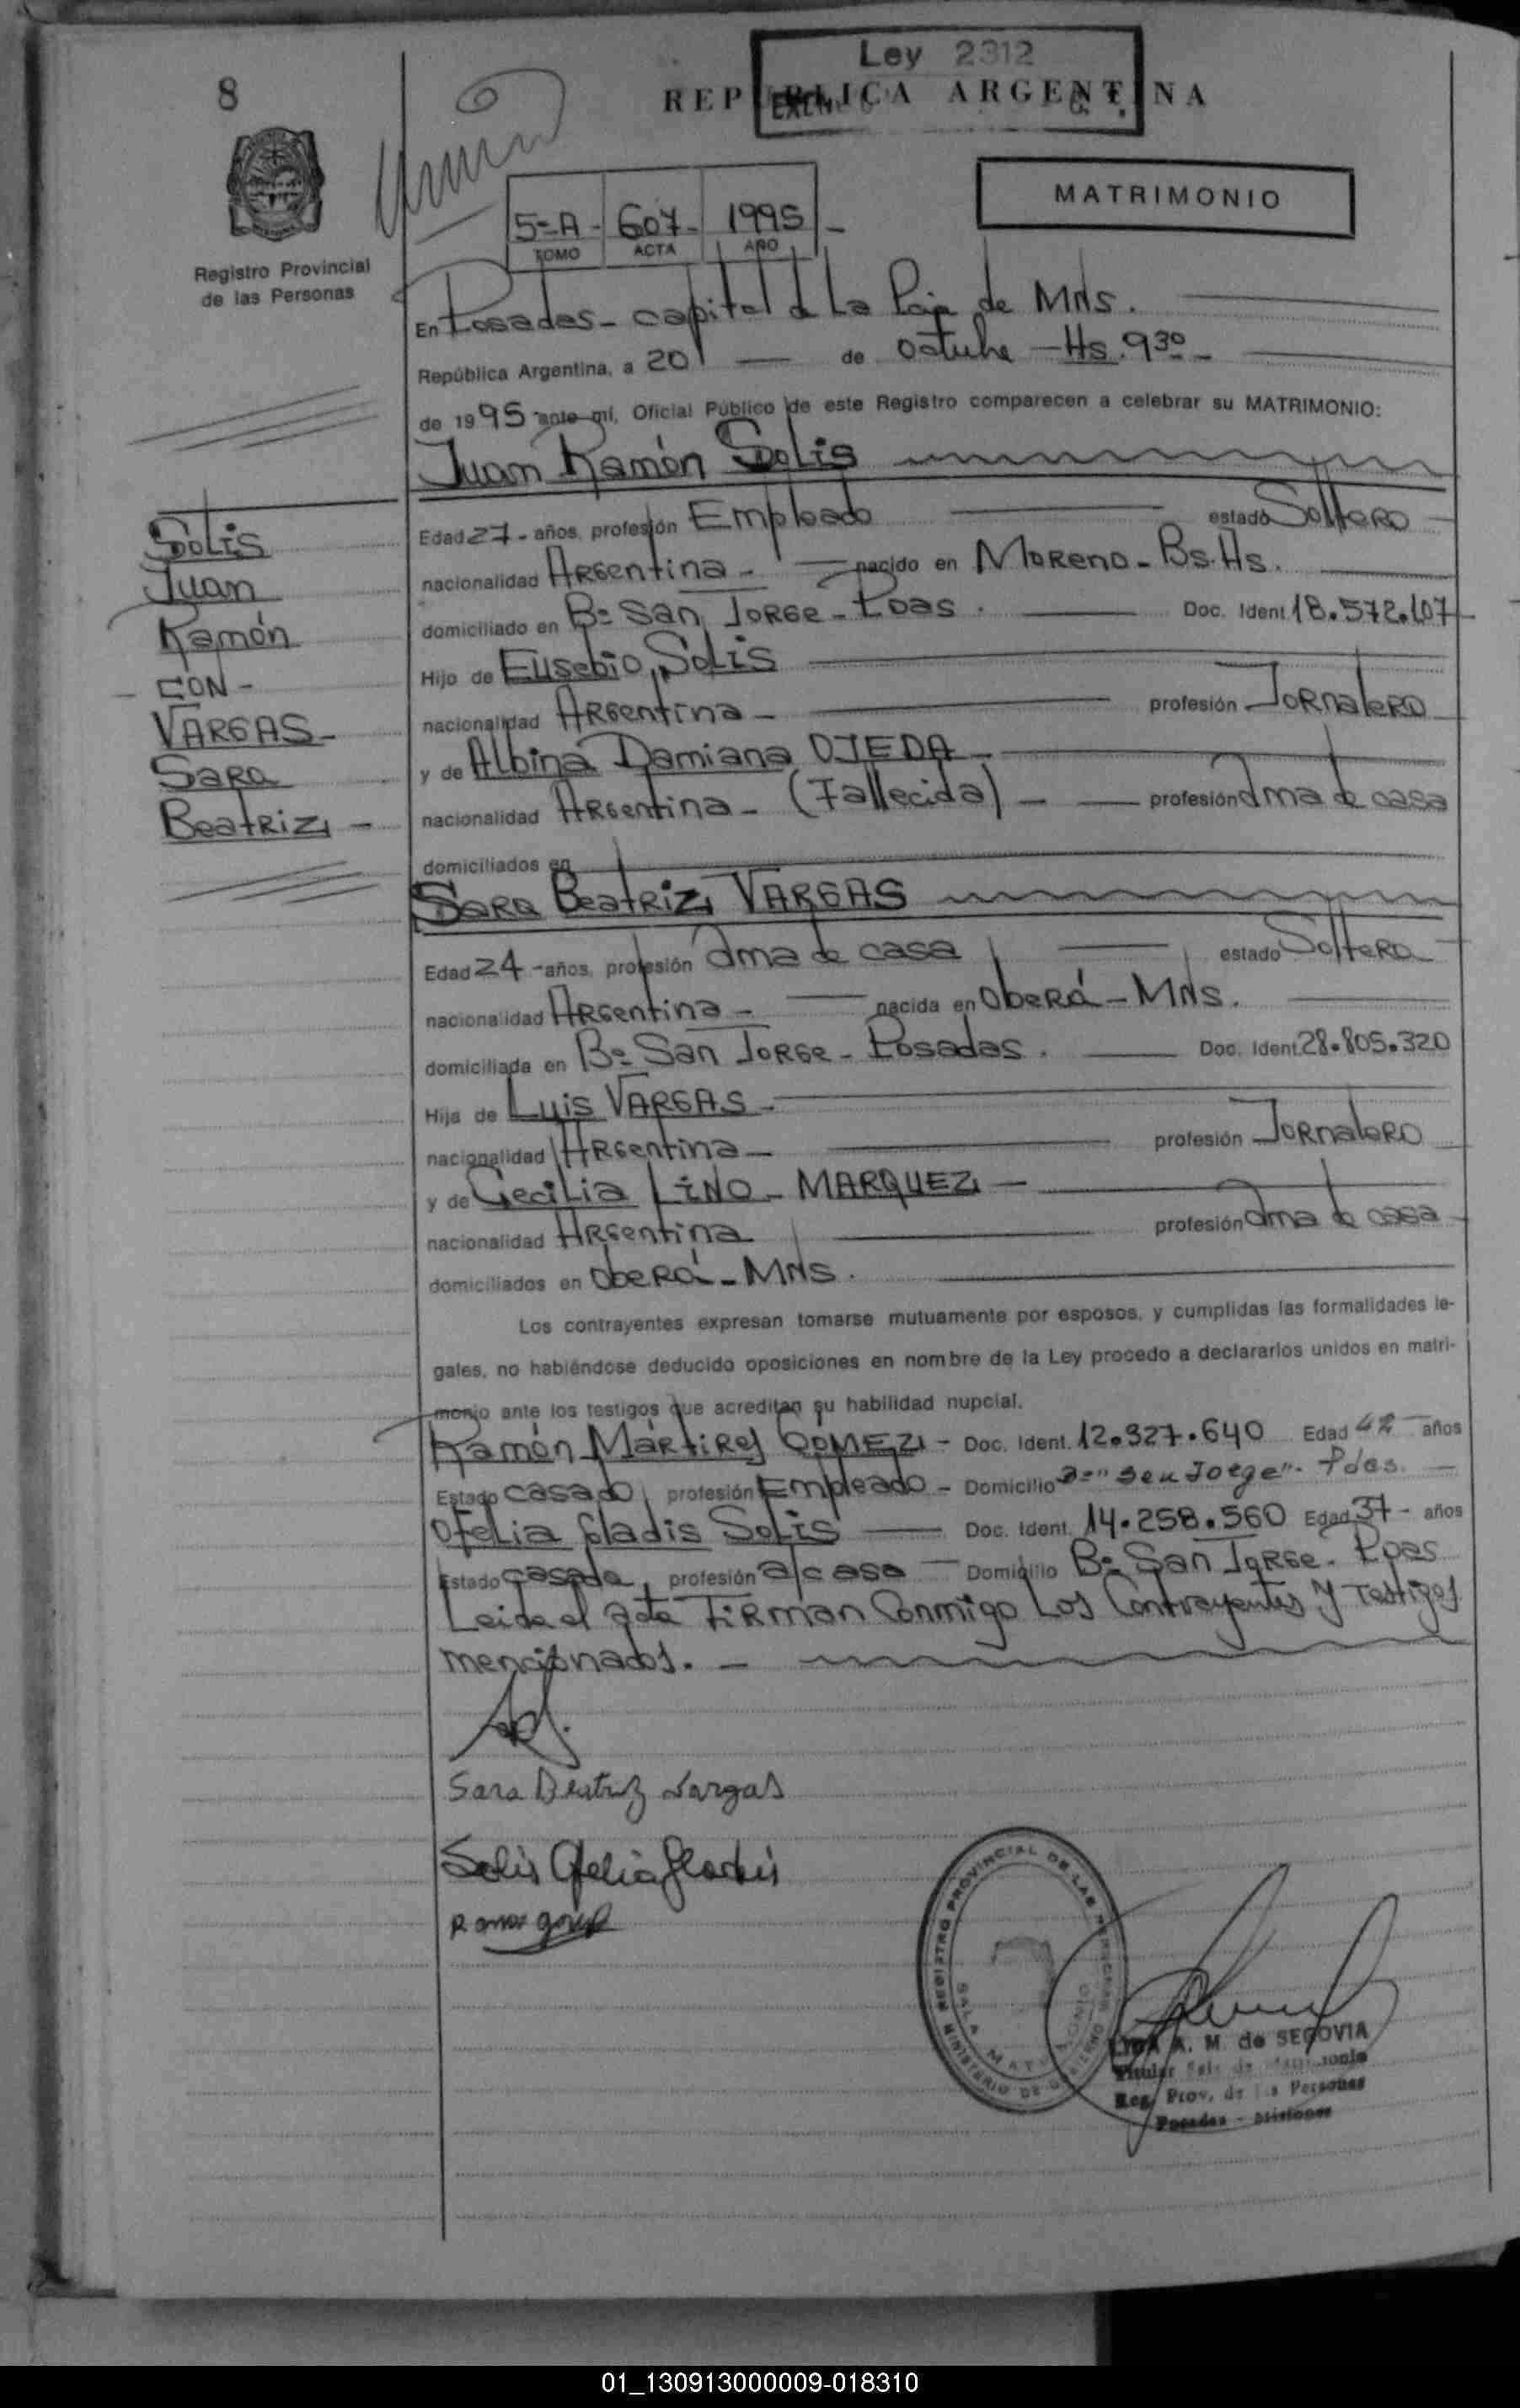 8
Ley 2312
REPUBLICA ARGENTINA
MATRIMONIO
5=A - 607 - 1995 -
TOMO ACTA AÑO
Registro Provincial
de las Personas
En Posadas - capital d La Pcia de MNS.
República Argentina, a 20 — de Octubre - Hs. 9 30 -
de 1995 ante mí, Oficial Público de este Registro comparecen a celebrar su MATRIMONIO:
Juan Ramón Solis
Solis
Juan
Ramón
- CON -
VARGAS -
Sara
Beatriz -
Edad 27 - años, profesión Empleado estado Soltero
nacionalidad Argentina - nacido en Moreno - Bs. As.
domiciliado en B= San Jorge - Pdas. Doc. Ident 18.572.107
Hijo de Eusebio Solis
nacionalidad Argentina - profesión Jornalero
y de Albina Damiana OJEDA -
nacionalidad Argentina - (Fallecida) - profesión ama de casa
domiciliados en
Sara Beatriz VARGAS
Edad 24 - años, profesión ama de casa estado Soltera
nacionalidad Argentina - nacida en Oberá - MNS.
domiciliada en B= San Jorge - Posadas. Doc. Ident 28.805.320
Hija de Luis VARGAS -
nacionalidad Argentina - profesión Jornalero
y de Cecilia LINO - MARQUEZ -
nacionalidad Argentina profesión ama de casa
domiciliados en Oberá - MNS.
Los contrayentes expresan tomarse mutuamente por esposos, y cumplidas las formalidades le-
gales, no habiéndose deducido oposiciones en nombre de la Ley procedo a declararlos unidos en matri-
monio ante los testigos que acreditan su habilidad nupcial.
Ramón Mártires GOMEZ - Doc. Ident. 12.327.640 Edad 42 años
Estado casado profesión Empleado - Domicilio B= "San Jorge" - Pdas. -
Ofelia Gladis Solis — Doc. Ident. 14.258.560 Edad 37 - años
Estado casada, profesión a/casa - Domicilio B= San Jorge. Pdas
Leida el acta Firman Conmigo Los Contrayentes Y Testigos
mencionados. -
Sara Beatriz Vargas
Solis Ofelia Gladis
REGISTRO PROVINCIAL DE LAS PERSONAS
SALA MATRIMONIO
MINISTERIO DE GOBIERNO
A. M. de SEGOVIA
Titular Sala de Matrimonio
Reg. Prov. de las Personas
Posadas - Misiones
01_130913000009-018310